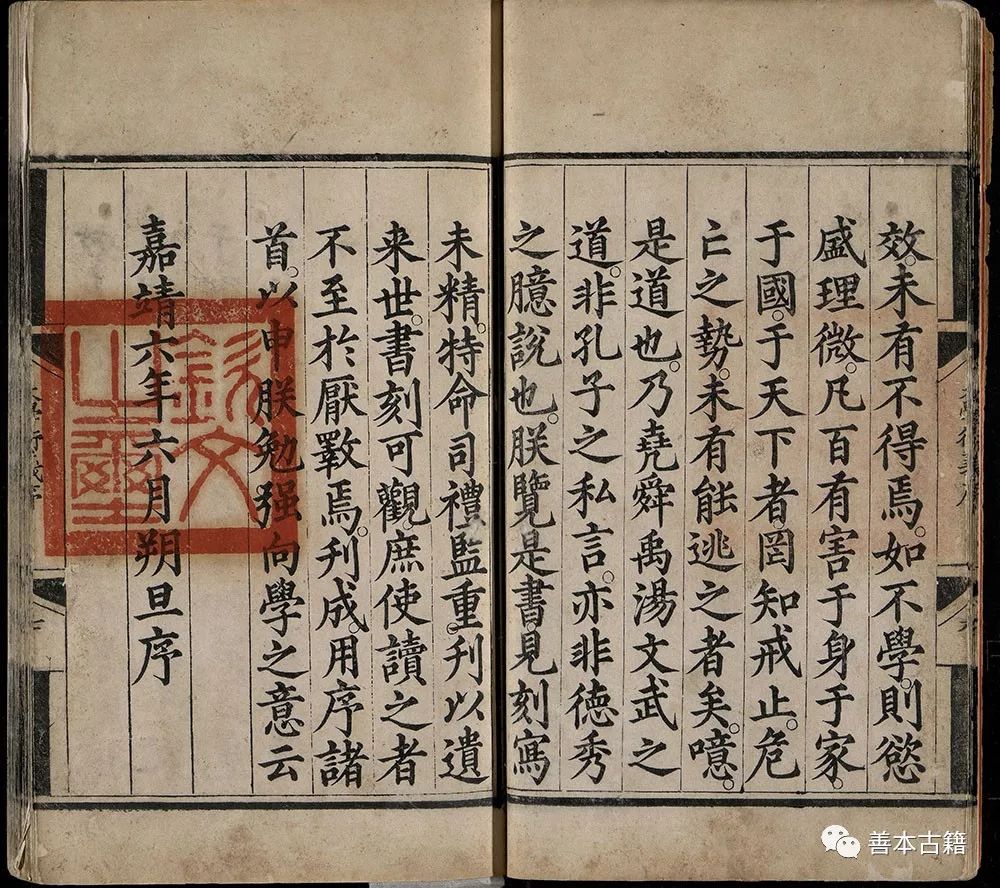 效。未有不得焉。如不學。則慾
盛理微。凡百有害于身于家。
于國。于天下者。罔知戒止。危
亡之勢。未有能逃之者矣。噫。
是道也。乃堯舜禹湯文武之
道。非孔子之私言。亦非德秀
之臆說也。朕覽是書。見刻寫
未精。特命司禮監重刊以遺
来世。書刻可觀。庶使讀之者
不至於厭斁焉。刋成。用序諸
首。以申朕勉强向學之意云
嘉靖六年六月朔旦序
欽文
之璽
善本古籍